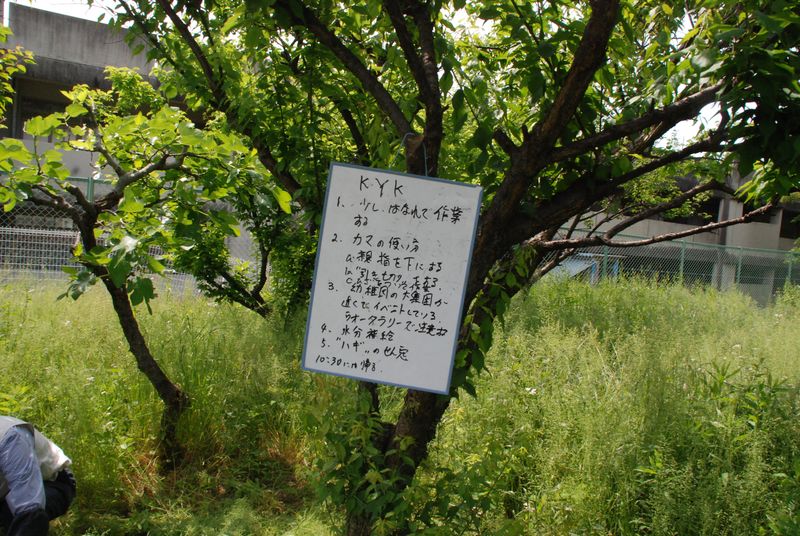 KYK
1. 少しはなれて作業
する
2. カマの使い方
a. 親指を下にする
b. 引き切り
3. 幼稚園の大集団が
近くでイベントしている
ウォータラリーで注意
4. 水分補給
5. "ハギ"のせん定
10:30には帰る.